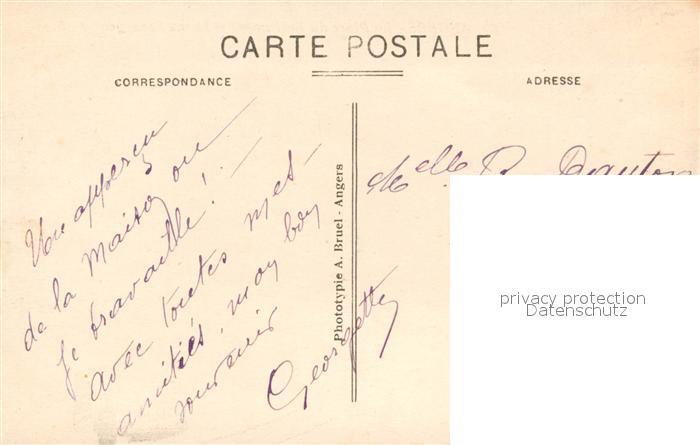 CARTE POSTALE
CORRESPONDANCE
ADRESSE
Un apperçu
de la maison ou
je travaille !
avec toutes mes
amitiés, mon bon
souvenir
Georgette
Phototypie A. Bruel - Angers
Melle
privacy protection
Datenschutz